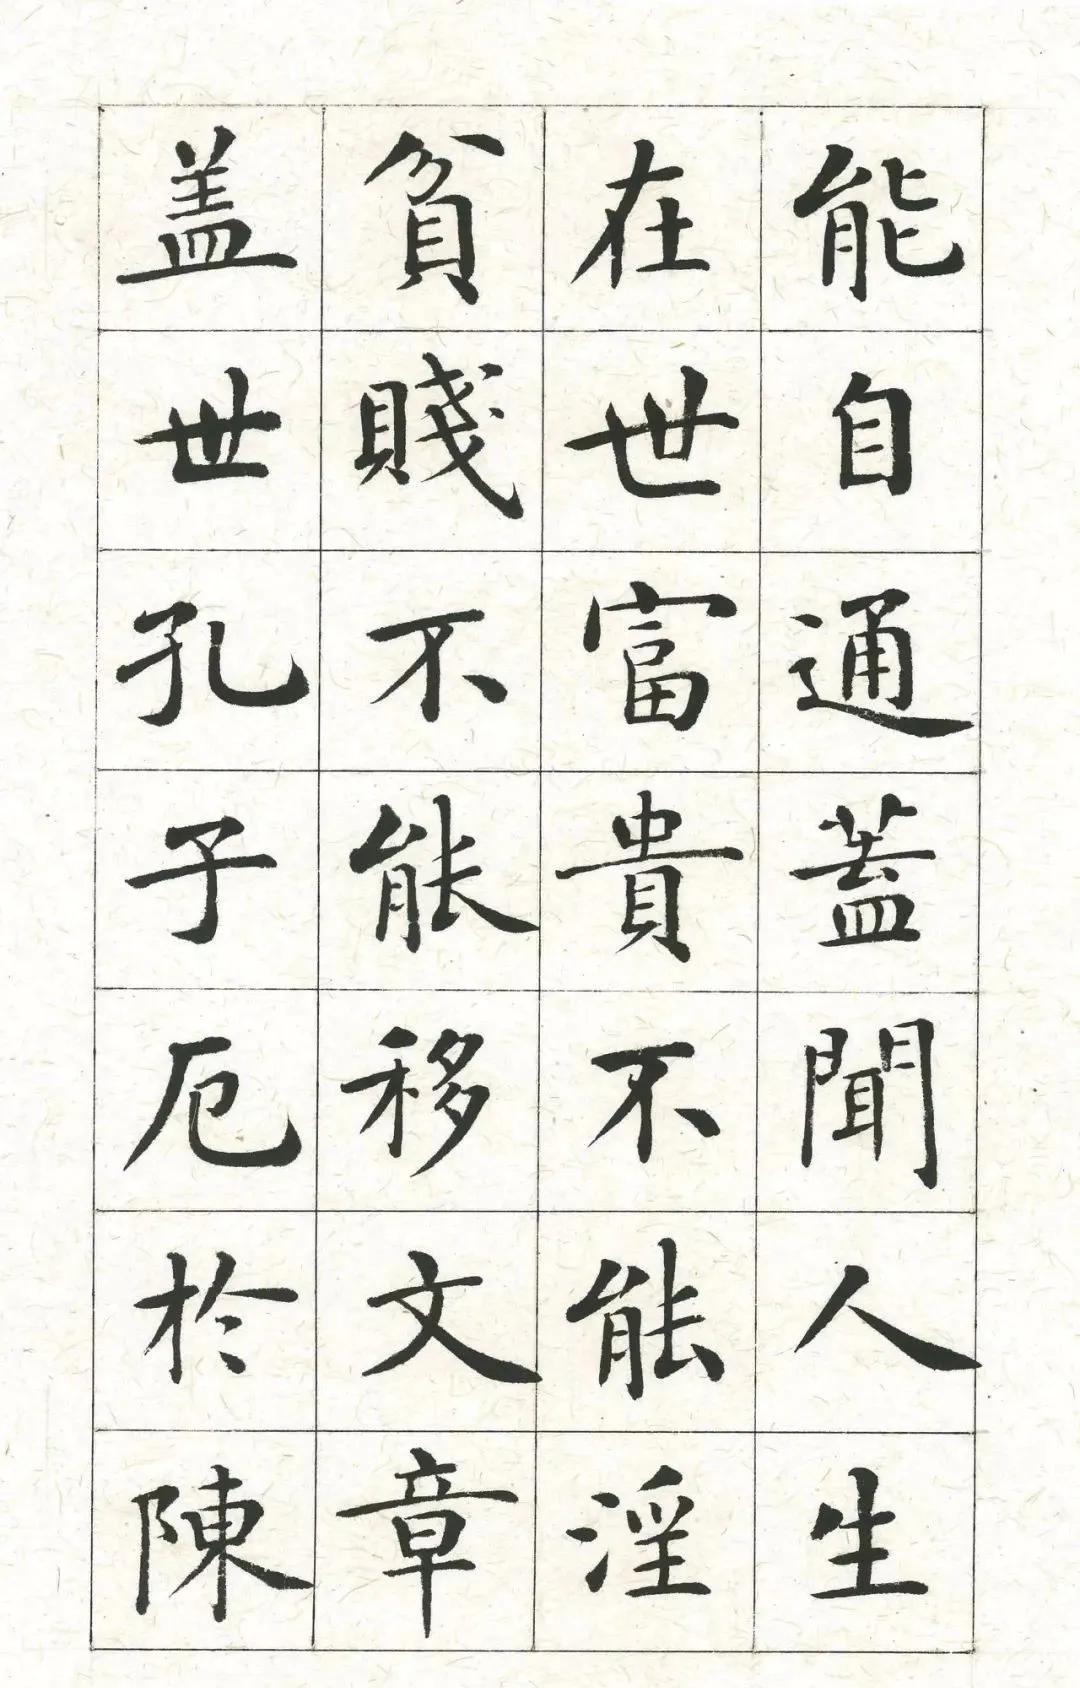 能自通蓋聞人生
在世富貴不能淫
貧賤不能移文章
盖世孔子厄於陳